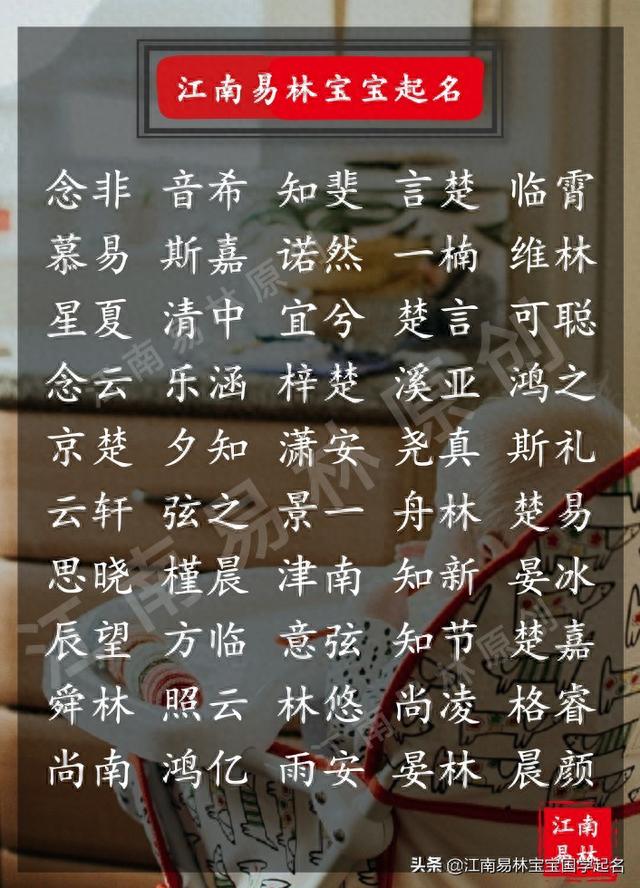 江南易林宝宝起名
念非 音希 知斐 言楚 临霄
慕易 斯嘉 诺然 一楠 维林
星夏 清中 宜兮 楚言 可聪
念云 乐涵 梓楚 溪亚 鸿之
京楚 夕知 潇安 尧真 斯礼
云轩 弦之 景一 舟林 楚易
思晓 槿晨 津南 知新 晏冰
辰望 方临 意弦 知节 楚嘉
舜林 照云 林悠 尚凌 格睿
尚南 鸿亿 雨安 晏林 晨颜
江南易林原创
江南易林原创
江南
易林
头条 @江南易林宝宝国学起名